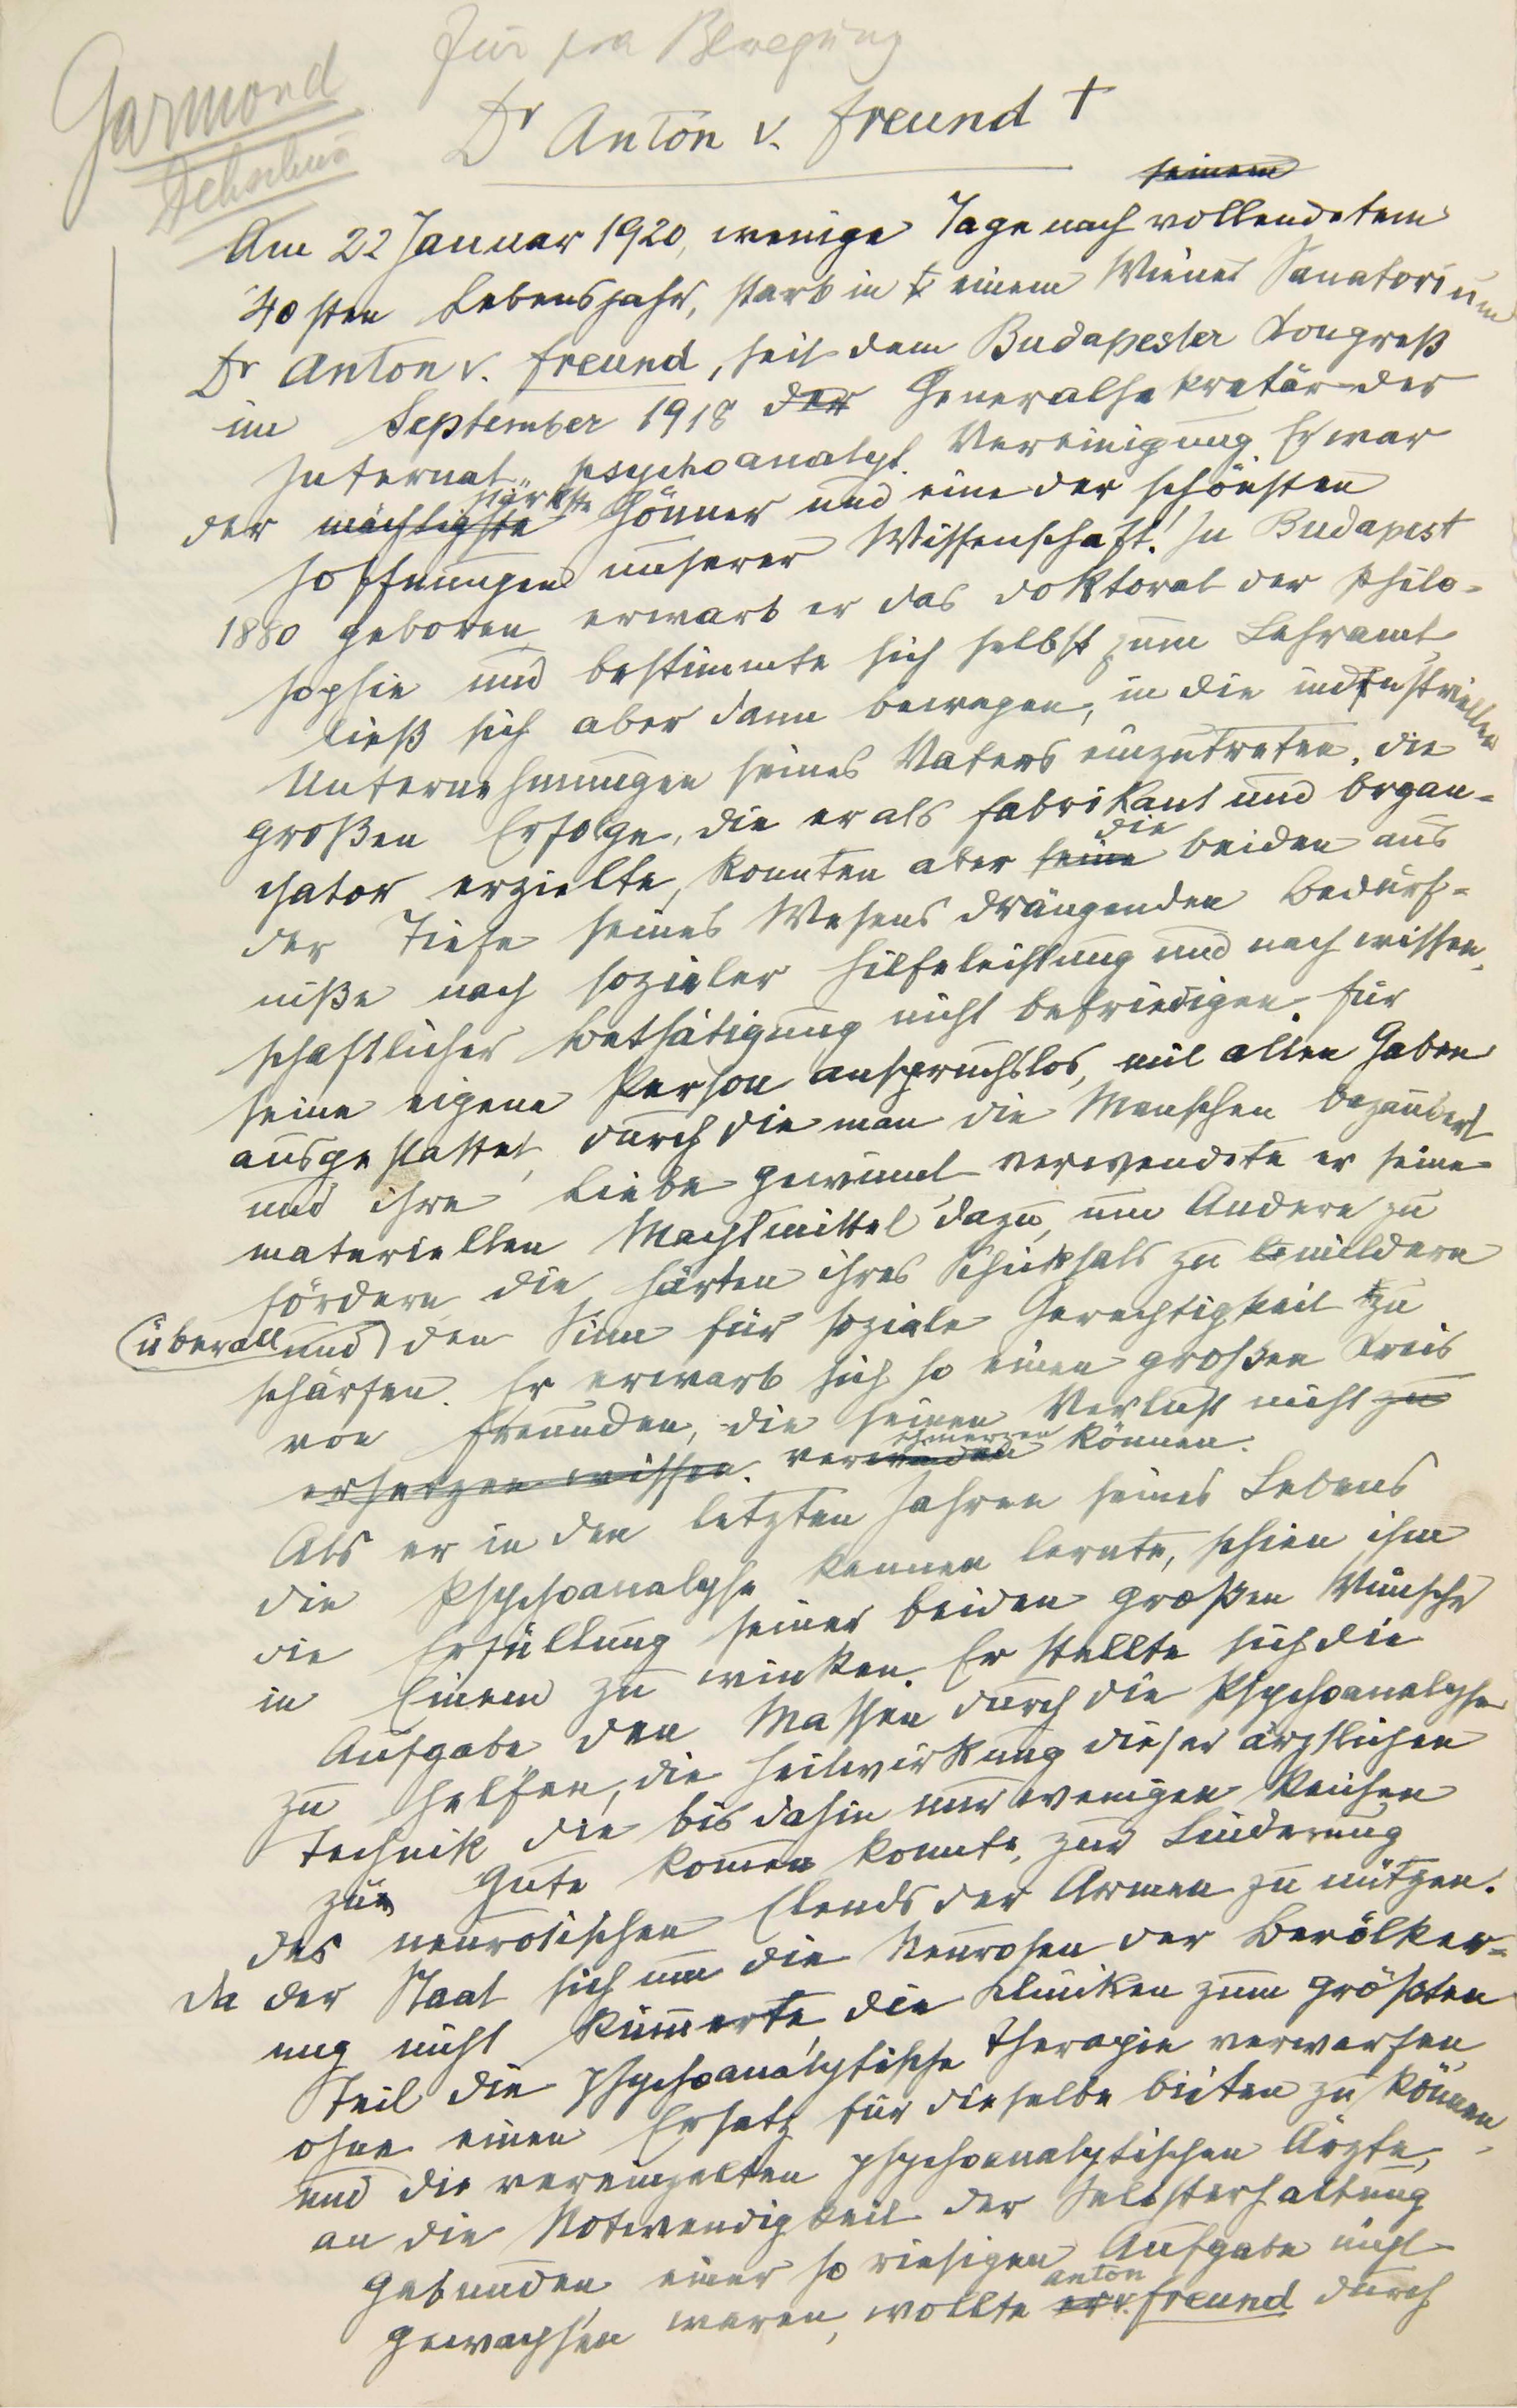 Für ψα Bewegung
Garmond
Dr Anton v. Freund †
seinem
Am 22 Januar 1920, wenige Tage nach vollendetem
40sten Lebensjahr, starb in einem Wiener Sanatorium
Dr Anton v. Freund, seit dem Budapester Kongreß
im September 1918 der Generalsekretär der
Internat. psychoanalyt. Vereinigung. Er war
der mächtigste stärkste Gönner und eine der schönsten
Hoffnungen unserer Wissenschaft! In Budapest
1880 geboren erwarb er das Doktorat der Philo-
sophie und bestimmte sich selbst zum Lehramt,
ließ sich aber dann bewegen, in die industriellen
Unternehmungen seines Vaters einzutreten. Die
großen Erfolge, die er als Fabrikant und Organi-
sator erzielte, konnten aber seine die beiden aus
der Tiefe seines Wesens drängenden Bedürf-
niße nach sozialer Hilfeleistung und nach wissen-
schaftlicher Bethätigung nicht befriedigen. Für
seine eigene Person anspruchslos, mit allen Gaben
ausgestattet, durch die man die Menschen bezaubert
und ihre Liebe gewinnt verwendete er seine
materiellen Machtmittel dazu, um Andere zu
fördern, die Härten ihres Schicksals zu mildern
und überall den Sinn für soziale Gerechtigkeit zu
schärfen. Er erwarb sich so einen großen Kreis
von Freunden, die seinen Verlust nicht zu
ersetzen wissen. verwinden schmerzen können.
Als er in den letzten Jahren seines Lebens
die Psychoanalyse kennen lernte, schien ihm
die Erfüllung seiner beiden großen Wünsche
in Einem zu winken. Er stellte sich die
Aufgabe den Massen durch die Psychoanalyse
zu helfen, die Heilwirkung dieser ärztlichen
Technik die bis dahin nur wenigen Reichen
zu Gute komen konnte, zur Linderung
des neurotischen Elends der Armen zu nützen.
Da der Staat sich um die Neurosen der Bevölker-
ung nicht kümmerte, die Kliniken zum größten
Teil die psychoanalytische Therapie verwarfen,
ohne einen Ersatz für dieselbe bieten zu können,
und die vereinzelten psychoanalytischen Ärzte,
an die Notwendigkeit der Selbsterhaltung
gebunden, einer so riesigen Aufgabe nicht
gewachsen waren, wollte er Anton v. Freund durch